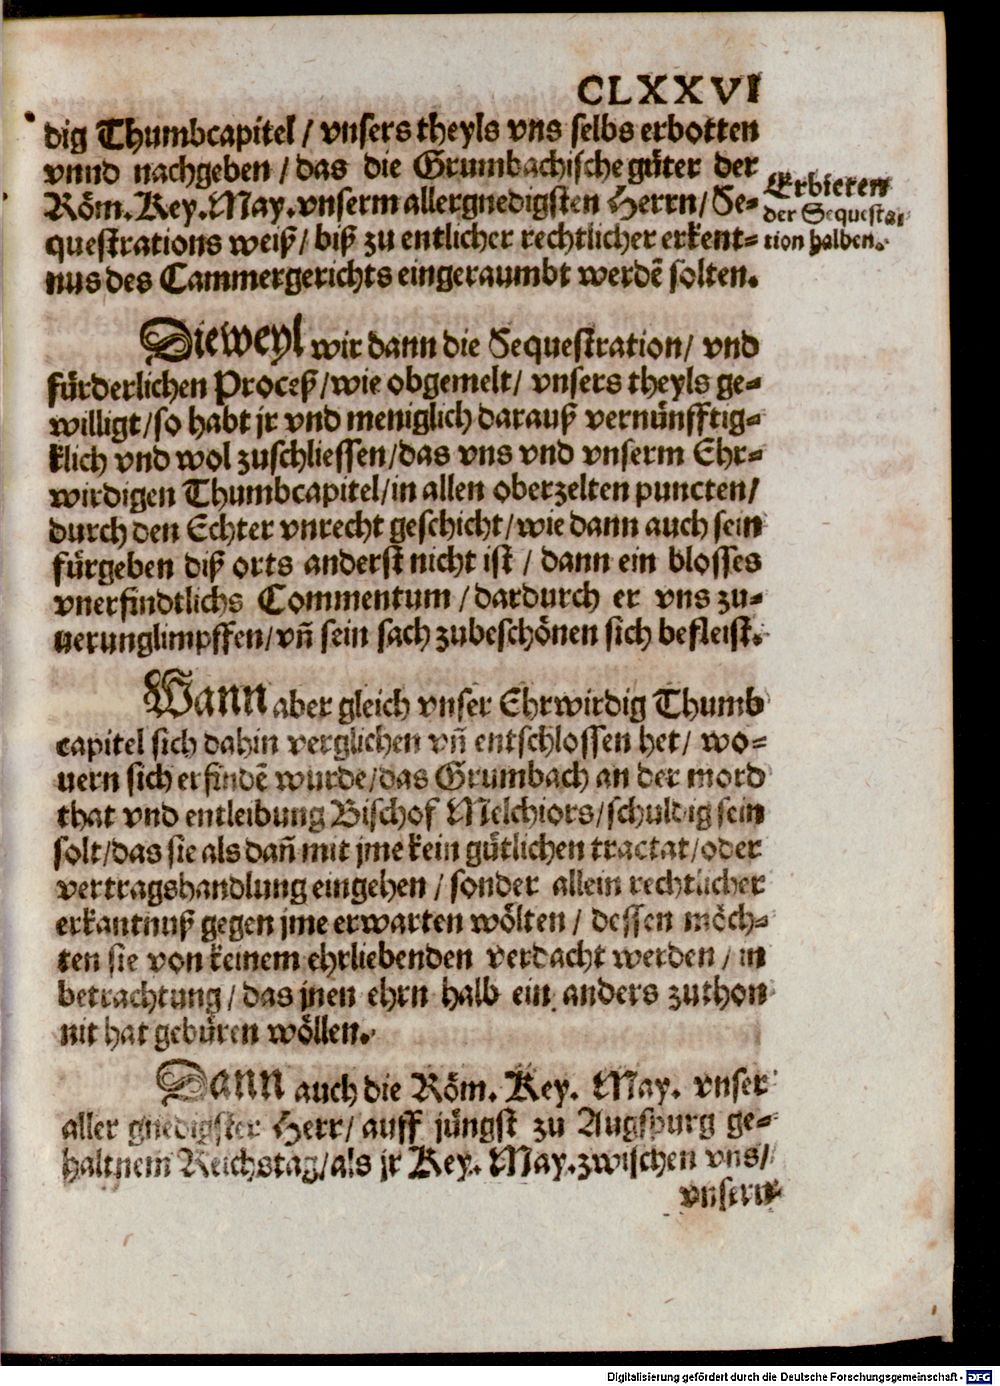 CLXXVI
dig Thumbcapitel / vnsers theyls vns selbs erbotten
vnnd nachgeben / das die Grumbachische güter der
Röm. Key. May. vnserm allergnedigsten Herrn / Se-
questrations weiß / biß zu entlicher rechtlicher erkent-
nus des Cammergerichts eingeraumbt werdẽ solten.
Erbieten
der Sequestra-
tion halben.
Dieweyl wir dann die Sequestration / vnd
fürderlichen Proceß / wie obgemelt / vnsers theyls ge-
willigt / so habt jr vnd meniglich darauß vernünfftig-
klich vnd wol zuschliessen / das vns vnd vnserm Ehr-
wirdigen Thumbcapitel / in allen oberzelten puncten /
durch den Echter vnrecht geschicht / wie dann auch sein
fürgeben diß orts anderst nicht ist / dann ein blosses
vnerfindtlichs Commentum / dardurch er vns zu-
uerunglimpffen / vñ sein sach zubeschönen sich befleist.
Wann aber gleich vnser Ehrwirdig Thumb
capitel sich dahin verglichen vñ entschlossen het / wo-
uern sich erfindẽ wurde / das Grumbach an der mord
that vnd entleibung Bischof Melchiors / schuldig sein
solt / das sie als dañ mit jme kein gütlichen tractat / oder
vertragshandlung eingehen / sonder allein rechtlicher
erkantnuß gegen jme erwarten wölten / dessen möch-
ten sie von keinem ehrliebenden verdacht werden / in
betrachtung / das jnen ehrn halb ein anders zuthon
nit hat gebüren wöllen.
Dann auch die Röm. Key. May. vnser
aller gnedigster Herr / auff jüngst zu Augspurg ge-
haltnem Reichstag / als jr Key. May. zwischen vns /
vnserm
Digitalisierung gefördert durch die Deutsche Forschungsgemeinschaft - DFG